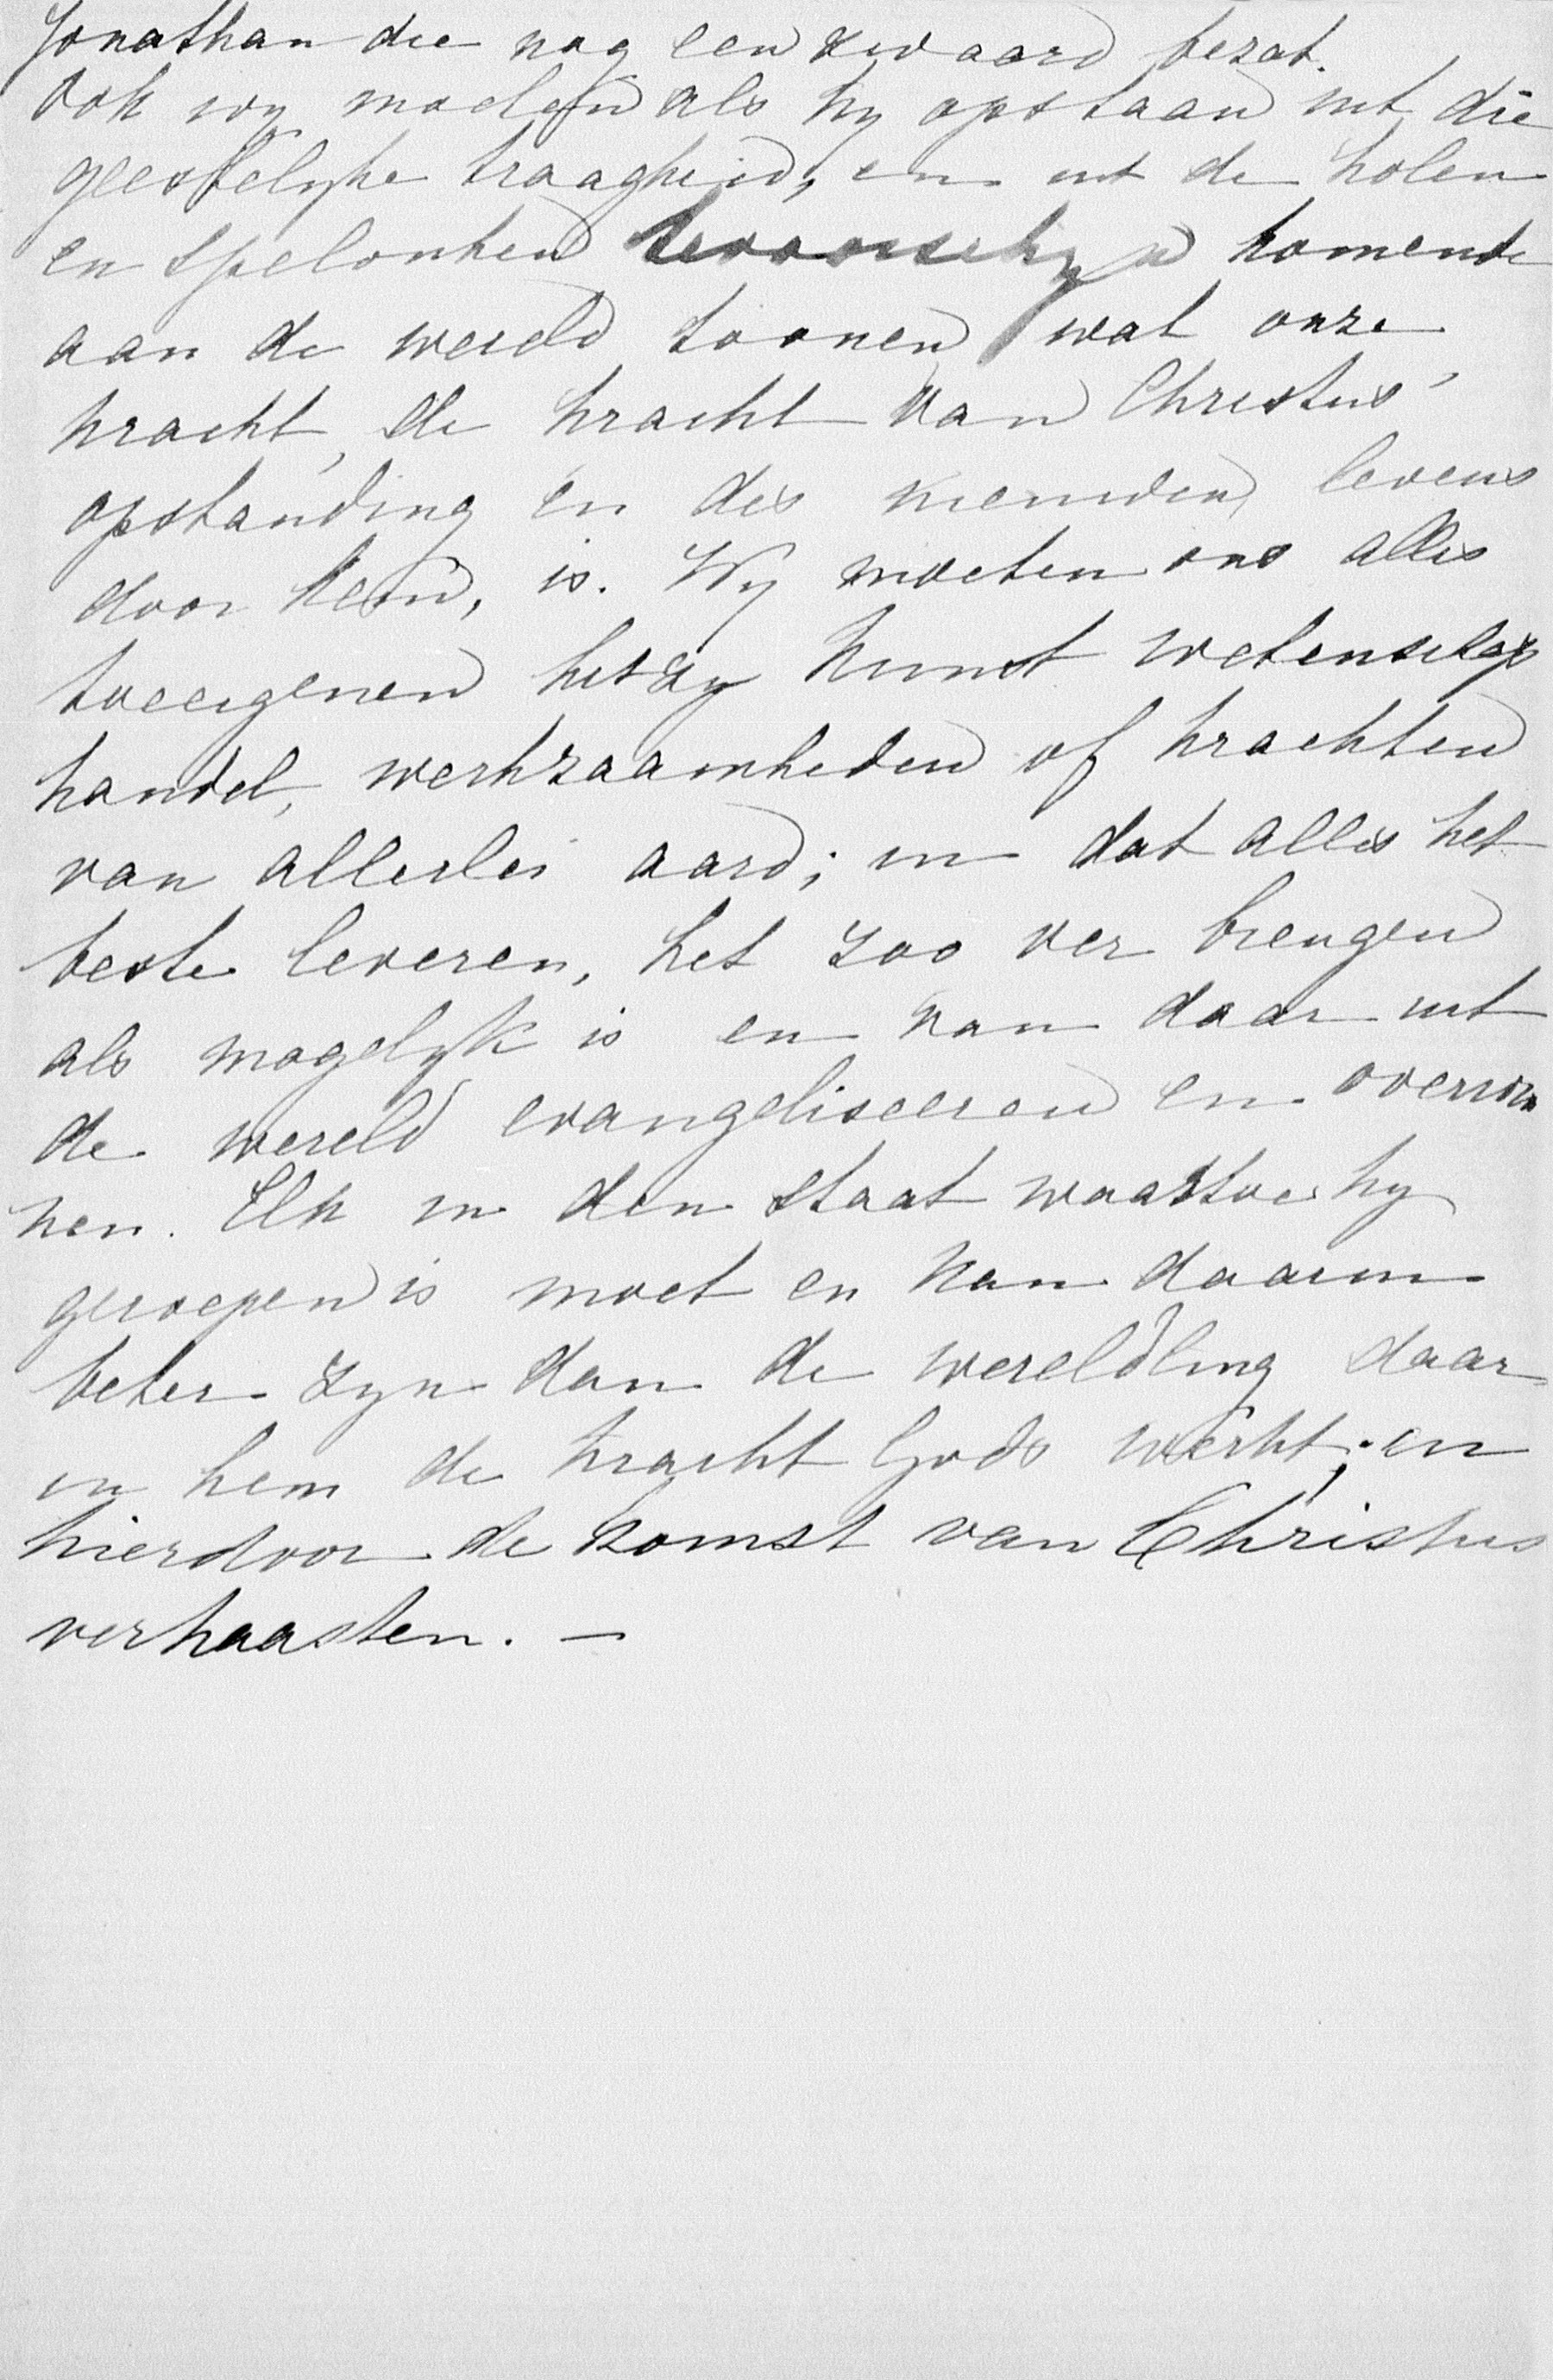 Jonathan die nog een zwaard bezat.
Ook wy moeten als hy opstaan uit die
geestelyke traagheid, en uit de holen
en spelonken tevoorschyn komende
aan de wereld toonen wat onze
kracht, de kracht van Christus'
opstanding en des nieuwen levens
door hem, is. Wy moeten ons alles
toeeigenen hetzy kunst wetenschap
handel, werkzaamheden of krachten
van allerlei aard; in dat alles het
beste leveren, het zoo ver brengen
als mogelyk is en van daar uit
de wereld evangeliseeren en overwin
nen. Elk in den staat waartoe hy
geroepen is moet en kan daarin
beter zyn dan de wereldling daar
in hem de kracht Gods werkt; en
hierdoor de komst van Christus
verhaasten. —